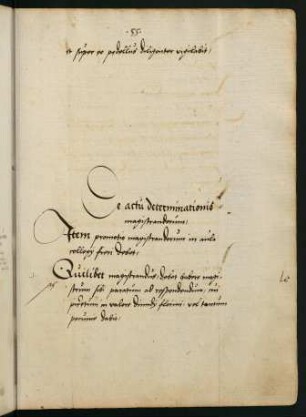 ·55·
et super eo pedellus diligenter vigilabit.
De actu determinationis
magistrandorum.
Item promotio magistrandorum in aula
collegij fieri debet.
Quilibet magistrandus debet habere magi-
strum sibi paratum ad respondendum, cui
in valore dimidij floreni vel tantum
pecunie dabit.